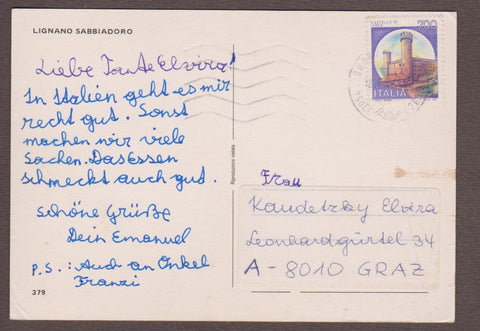 LIGNANO SABBIADORO
Liebe Tante Elvira!
In Italien geht es mir
recht gut. Sonst
machen wir viele
Sachen. Das Essen
schmeckt auch gut.
schöne Grüße
Dein Emanuel
P.S.: Auch an Onkel
Franzi
379
Riproduzione vietata
700
ITALIA
33054
Frau
Kaudetzky Elvira
Leonhardgürtel 34
A-8010 GRAZ